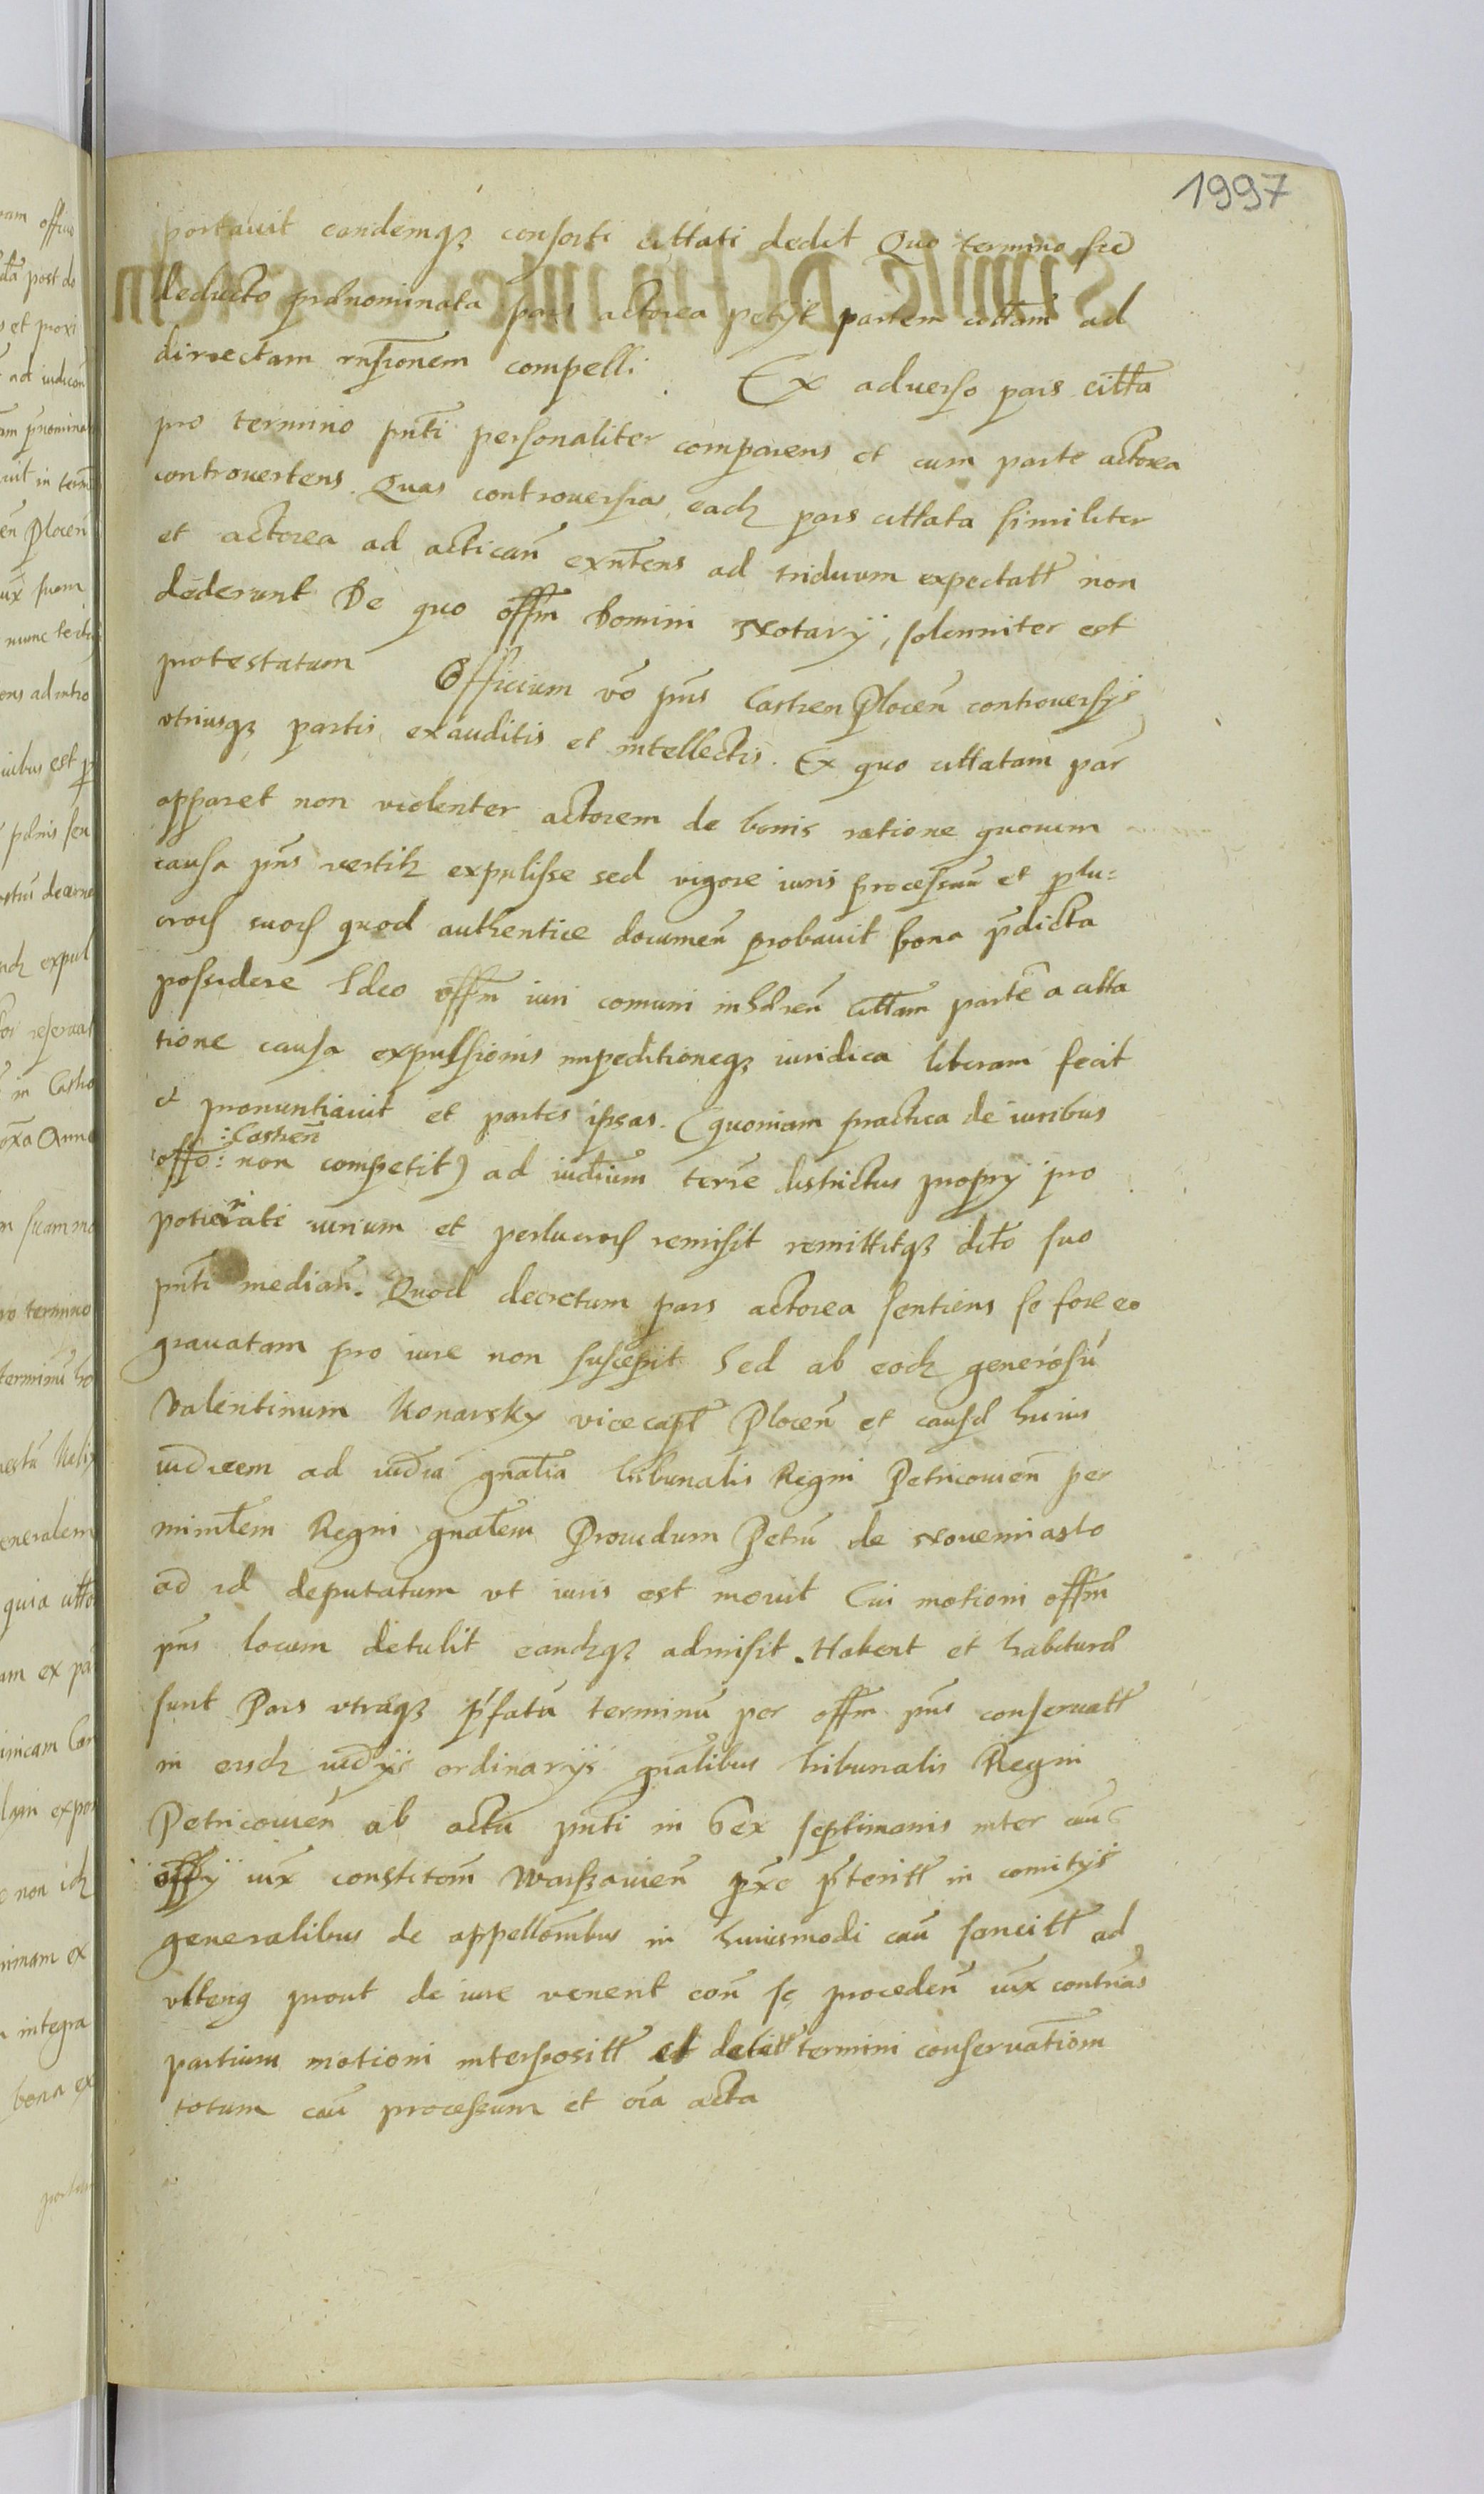 1997
portauit eandemqz consorti cittati dedit Quo termino sic
deducto prænominata pars actorea petyt partem cittam ad
directam rnsionem compelli. Ex aduerso pars citta
pro termino pnti personaliter comparens et cum parte actorea
controuertens. Quas controuersias eadz pars cittata similiter
et actorea ad actican exntens ad triduum expectatt non
dederunt De quo offm Domini Notarij, solenniter est
protestatum Officium vo pns Castren Plocen controuersijs
vtriusqz partis exauditis et intellectis. Ex quo cittatam par
apparet non violenter actorem de bonis ratione quorum
causa pns vertitz expulisse sed vigore iuris processum et plu=
crors suors quod authentice documen probauit bona pdicta
possidere Ideo offm iuri comuni inhæren Cittam parte a citta
tione causa expulsionis impeditioneqz iuridica liberam fecit
et pronuntiauit et partes ipsas. (quoniam practica de iuribus
:Castren
offo: non competit) ad iudium terre districtus propry pro
potioritate iurium et perlucrors remisit remittitqz dcto suo
pnti median. Quod decretum pars actorea sentiens se fore eo
grauatam pro iure non suscepit Sed ab eodz generosu
Valentinum Konarsky vicecapt Plocen et causæ huius
iudicem ad iudia gnalia tribunalis Regni Petricouien per
mintlem Regni gnalem Prouidum Petru de Nouemiasto
ad id deputatum vt iuris est mouit Cui motioni offm
pns locum detulit eandzqz admisit. Habent et habituræ
sunt Pars vtraqz pfatu terminu per offm pns conseruatt
in eisdz iudijs ordinarijs gnalibus tribunalis Regni
Petricouien ab actu pnti in sex septimanis inter cau
offy iux constitom Warszauien pxe pteritt in comitijs
generalibus de appellonibus in huiusmodi cau sancitt ad
vlteng prout de iure venerit con se proceden iux contrias
partium motioni interpositt et termini conseruationem
totum cau processum et oia acta